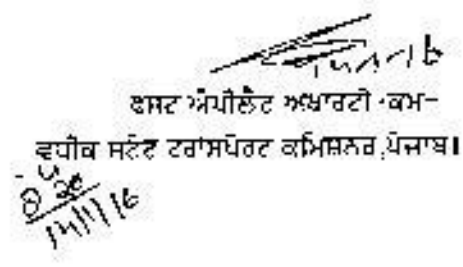 ਫਸਟ ਐਪੀਲੈਟ ਅਥਾਰਟੀ-ਕਮ-
ਵਧੀਕ ਸਟੇਟ ਟਰਾਂਸਪੋਰਟ ਕਮਿਸ਼ਨਰ,ਪੰਜਾਬ।
14/1/16